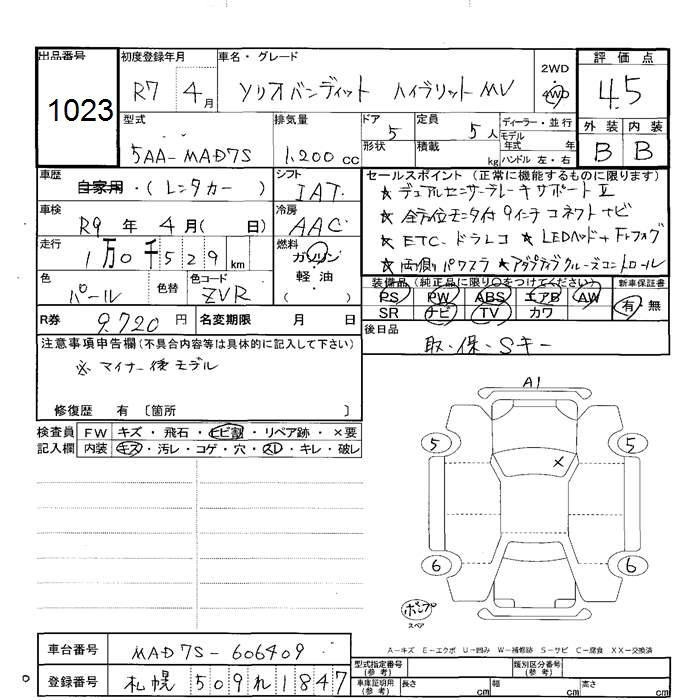 出品番号
1023
初度登録年月
R7 4月
車名・グレード
ソリオバンディット ハイブリット MV
2WD
4WD
評価点
4.5
外装 内装
B B
型式
5AA-MAD7S
排気量
1,200cc
ドア
5
形状
定員
5人
積載
kg
ディーラー・並行
モデル年式 年
ハンドル 左・右
車歴
自家用・(レンタカー)
シフト
IAT
車検
R9年4月(日)
冷房
AAC
走行
1万0千529km
燃料
ガソリン
軽油
( )
色
パール
色替
色コード
ZVR
R券
9,720円
名変期限 月 日
セールスポイント(正常に機能するものに限ります)
★デュアルセンサーブレーキサポートⅡ
★全方位モニタ付9インチコネクトナビ
★ETC・ドラレコ ★LEDヘッド+Frフォグ
★両側パワスラ ★アダプティブクルーズコントロール
装備品(純正品に限り○をつけてください)
PS PW ABS エアB AW
SR ナビ TV カワ
新車保証書
有・無
後日品
取・保・Sキー
注意事項申告欄(不具合内容等は具体的に記入して下さい)
※マイナー後モデル
修復歴 有〔箇所 〕
検査員記入欄
FW キズ・飛石・ヒビ割・リペア跡・×要
内装 キズ・汚レ・コゲ・穴・スレ・キレ・破レ
A1
5 5
×
6 6
ポンプ
スペア
A-キズ E-エクボ U-凹み W-補修跡 S-サビ C-腐食 XX-交換済
車台番号
MAD7S-606409
登録番号
札幌509れ1847
型式指定番号(参考)
類別区分番号(参考)
車庫証明用(参考)
長さ cm 幅 cm 高さ cm